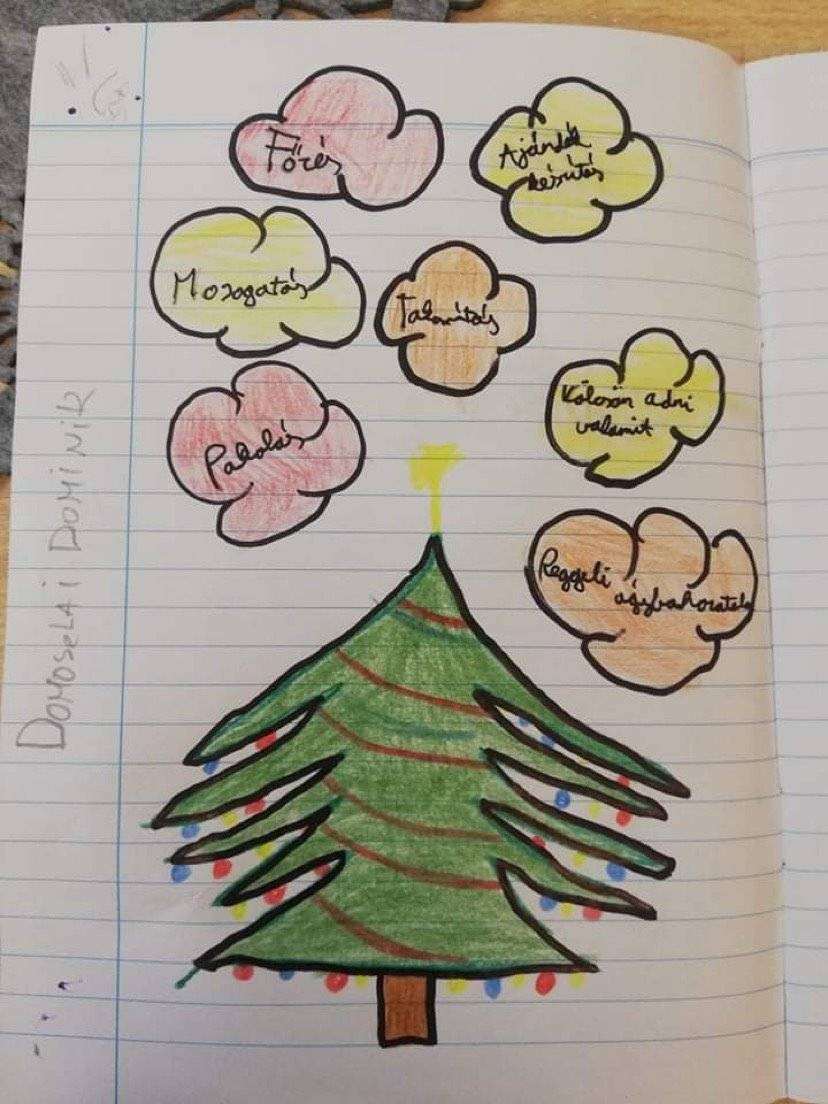 Főzés
Ajándék
készítés
Mosogatás
Takarítás
Kölcsön adni
valamit
Pakolás
Reggeli ágybahozatal
DOMOSZLAI DOMINIK